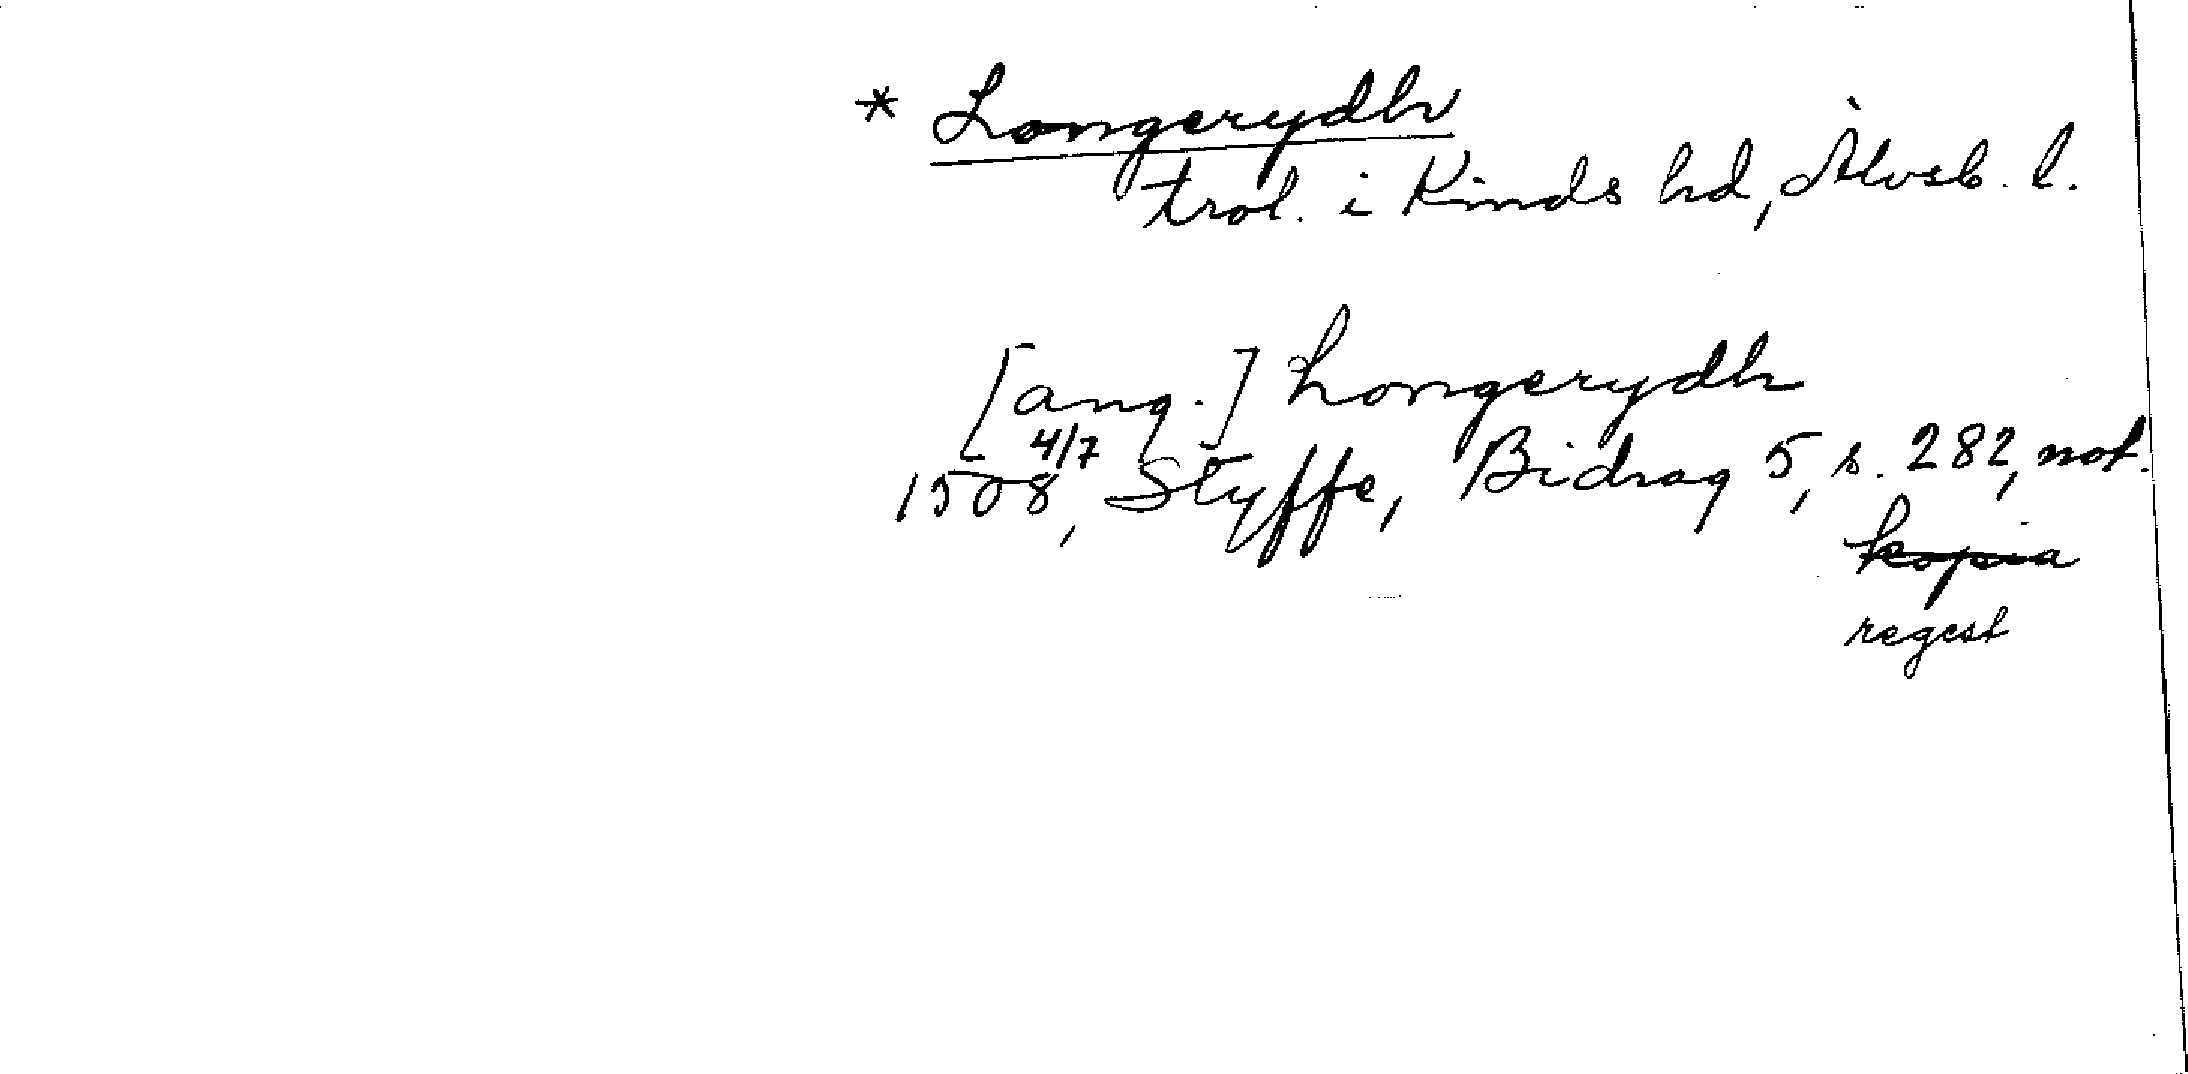 * Longerydh
trol. i Kinds hd, Älvsb. l.
[ang.] Longerydh
4/7
1508, Styffe, Bidrag 5, s. 282, not.
kopia
regest